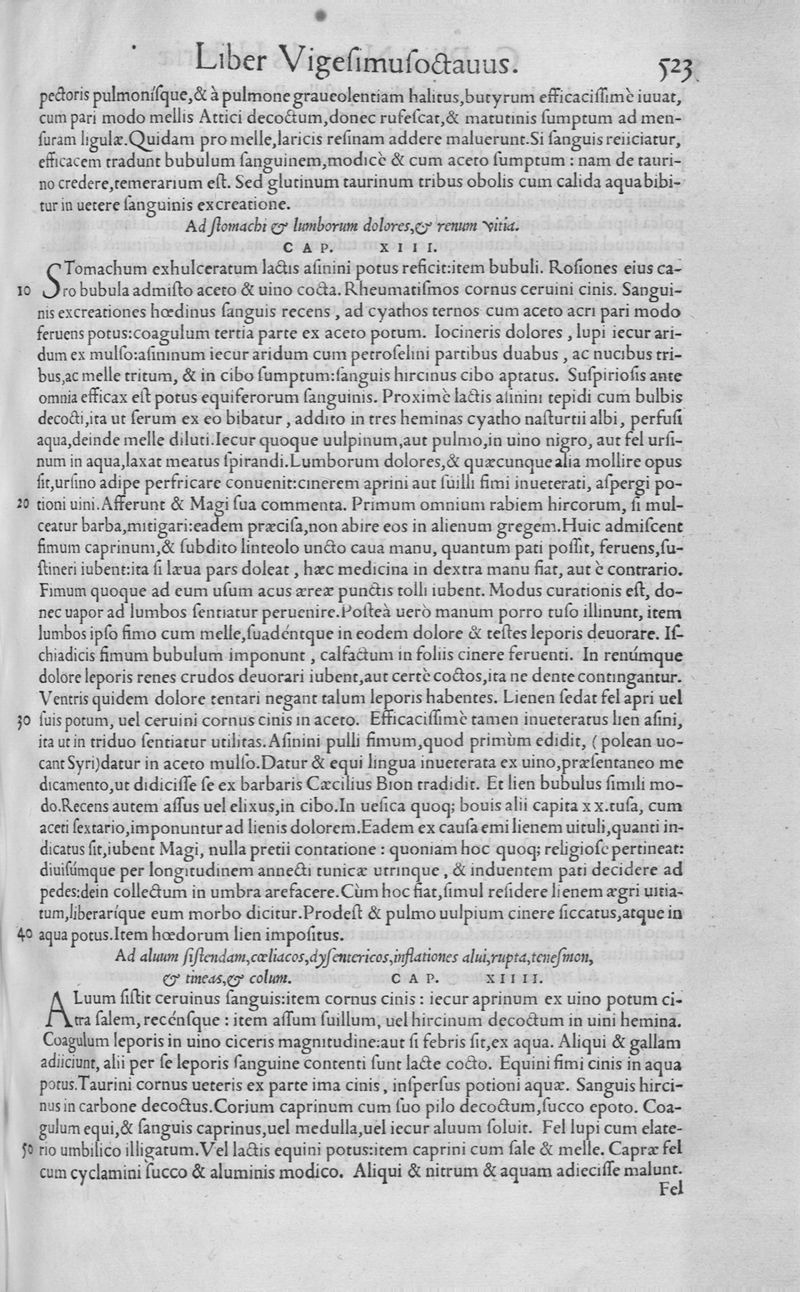 Liber Vigeſimuſoctauus. 523
pectoris pulmoníſque,& à pulmone graueolentiam halitus,butyrum efficaciſſimè iuuat,
cum pari modo mellis Attici decoctum,donec rufeſcat,& matutinis ſumptum ad men-
ſuram ligulæ.Quidam pro melle,laricis reſinam addere maluerunt.Si ſanguis reiiciatur,
efficacem tradunt bubulum ſanguinem,modicè & cum aceto ſumptum : nam de tauri-
no credere,temerarium eſt. Sed glutinum taurinum tribus obolis cum calida aqua bibi-
tur in uetere ſanguinis excreatione.
Ad ſtomachi & lumborum dolores,& renum vitia.
C A P. X I I I.
STomachum exhulceratum lactis aſinini potus reficit:item bubuli. Roſiones eius ca-
10 ro bubula admiſto aceto & uino cocta. Rheumatiſmos cornus ceruini cinis. Sangui-
nis excreationes hœdinus ſanguis recens , ad cyathos ternos cum aceto acri pari modo
feruens potus:coagulum tertia parte ex aceto potum. Iocineris dolores , lupi iecur ari-
dum ex mulſo:aſininum iecur aridum cum petroſelini partibus duabus , ac nucibus tri-
bus,ac melle tritum, & in cibo ſumptum:ſanguis hircinus cibo aptatus. Suſpirioſis ante
omnia efficax eſt potus equiferorum ſanguinis. Proximè lactis aſinini tepidi cum bulbis
decocti,ita ut ſerum ex eo bibatur , addito in tres heminas cyatho naſturtii albi, perfuſi
aqua,deinde melle diluti.Iecur quoque uulpinum,aut pulmo,in uino nigro, aut fel urſi-
num in aqua,laxat meatus ſpirandi.Lumborum dolores,& quæcunque alia mollire opus
ſit,urſino adipe perfricare conuenit:cinerem aprini aut ſuilli fimi inueterati, aſpergi po-
20 tioni uini.Afferunt & Magi ſua commenta. Primum omnium rabiem hircorum, ſi mul-
ceatur barba,mitigari:eadem præciſa,non abire eos in alienum gregem.Huic admiſcent
fimum caprinum,& ſubdito linteolo uncto caua manu, quantum pati poſſit, feruens,ſu-
ſtineri iubent:ita ſi læua pars doleat , hæc medicina in dextra manu fiat, aut è contrario.
Fimum quoque ad eum uſum acus æreæ punctis tolli iubent. Modus curationis eſt, do-
nec uapor ad lumbos ſentiatur peruenire.Poſteà uerò manum porro tuſo illinunt, item
lumbos ipſo fimo cum melle,ſuadéntque in eodem dolore & teſtes leporis deuorare. Iſ-
chiadicis fimum bubulum imponunt , calfactum in foliis cinere feruenti. In renúmque
dolore leporis renes crudos deuorari iubent,aut certè coctos,ita ne dente contingantur.
Ventris quidem dolore tentari negant talum leporis habentes. Lienen ſedat fel apri uel
30 ſuis potum, uel ceruini cornus cinis in aceto. Efficaciſſimè tamen inueteratus lien aſini,
ita ut in triduo ſentiatur utilitas.Aſinini pulli fimum,quod primùm edidit, ( polean uo-
cant Syri)datur in aceto mulſo.Datur & equi lingua inueterata ex uino,præſentaneo me
dicamento,ut didiciſſe ſe ex barbaris Cæcilius Bion tradidit. Et lien bubulus ſimili mo-
do.Recens autem aſſus uel elixus,in cibo.In ueſica quoq; bouis alii capita x x.tuſa, cum
aceti ſextario,imponuntur ad lienis dolorem.Eadem ex cauſa emi lienem uituli,quanti in-
dicatus ſit,iubent Magi, nulla pretii contatione : quoniam hoc quoq; religioſe pertineat:
diuiſúmque per longitudinem annecti tunicæ utrinque , & induentem pati decidere ad
pedes:dein collectum in umbra arefacere.Cùm hoc fiat,ſimul reſidere lienem ægri uitia-
tum,liberaríque eum morbo dicitur.Prodeſt & pulmo uulpium cinere ſiccatus,atque in
40 aqua potus.Item hœdorum lien impoſitus.
Ad aluum ſiſtendam,cœliacos,dyſentericos,inflationes alui,rupta,teneſmon,
& tineas,& colum. C A P. X I I I I.
ALuum ſiſtit ceruinus ſanguis:item cornus cinis : iecur aprinum ex uino potum ci-
tra ſalem, recénſque : item aſſum ſuillum, uel hircinum decoctum in uini hemina.
Coagulum leporis in uino ciceris magnitudine:aut ſi febris ſit,ex aqua. Aliqui & gallam
adiiciunt, alii per ſe leporis ſanguine contenti ſunt lacte cocto. Equini fimi cinis in aqua
potus.Taurini cornus ueteris ex parte ima cinis, inſperſus potioni aquæ. Sanguis hirci-
nus in carbone decoctus.Corium caprinum cum ſuo pilo decoctum,ſucco epoto. Coa-
gulum equi,& ſanguis caprinus,uel medulla,uel iecur aluum ſoluit. Fel lupi cum elate-
50 rio umbilico illigatum.Vel lactis equini potus:item caprini cum ſale & melle. Capræ fel
cum cyclamini ſucco & aluminis modico. Aliqui & nitrum & aquam adieciſſe malunt.
Fel